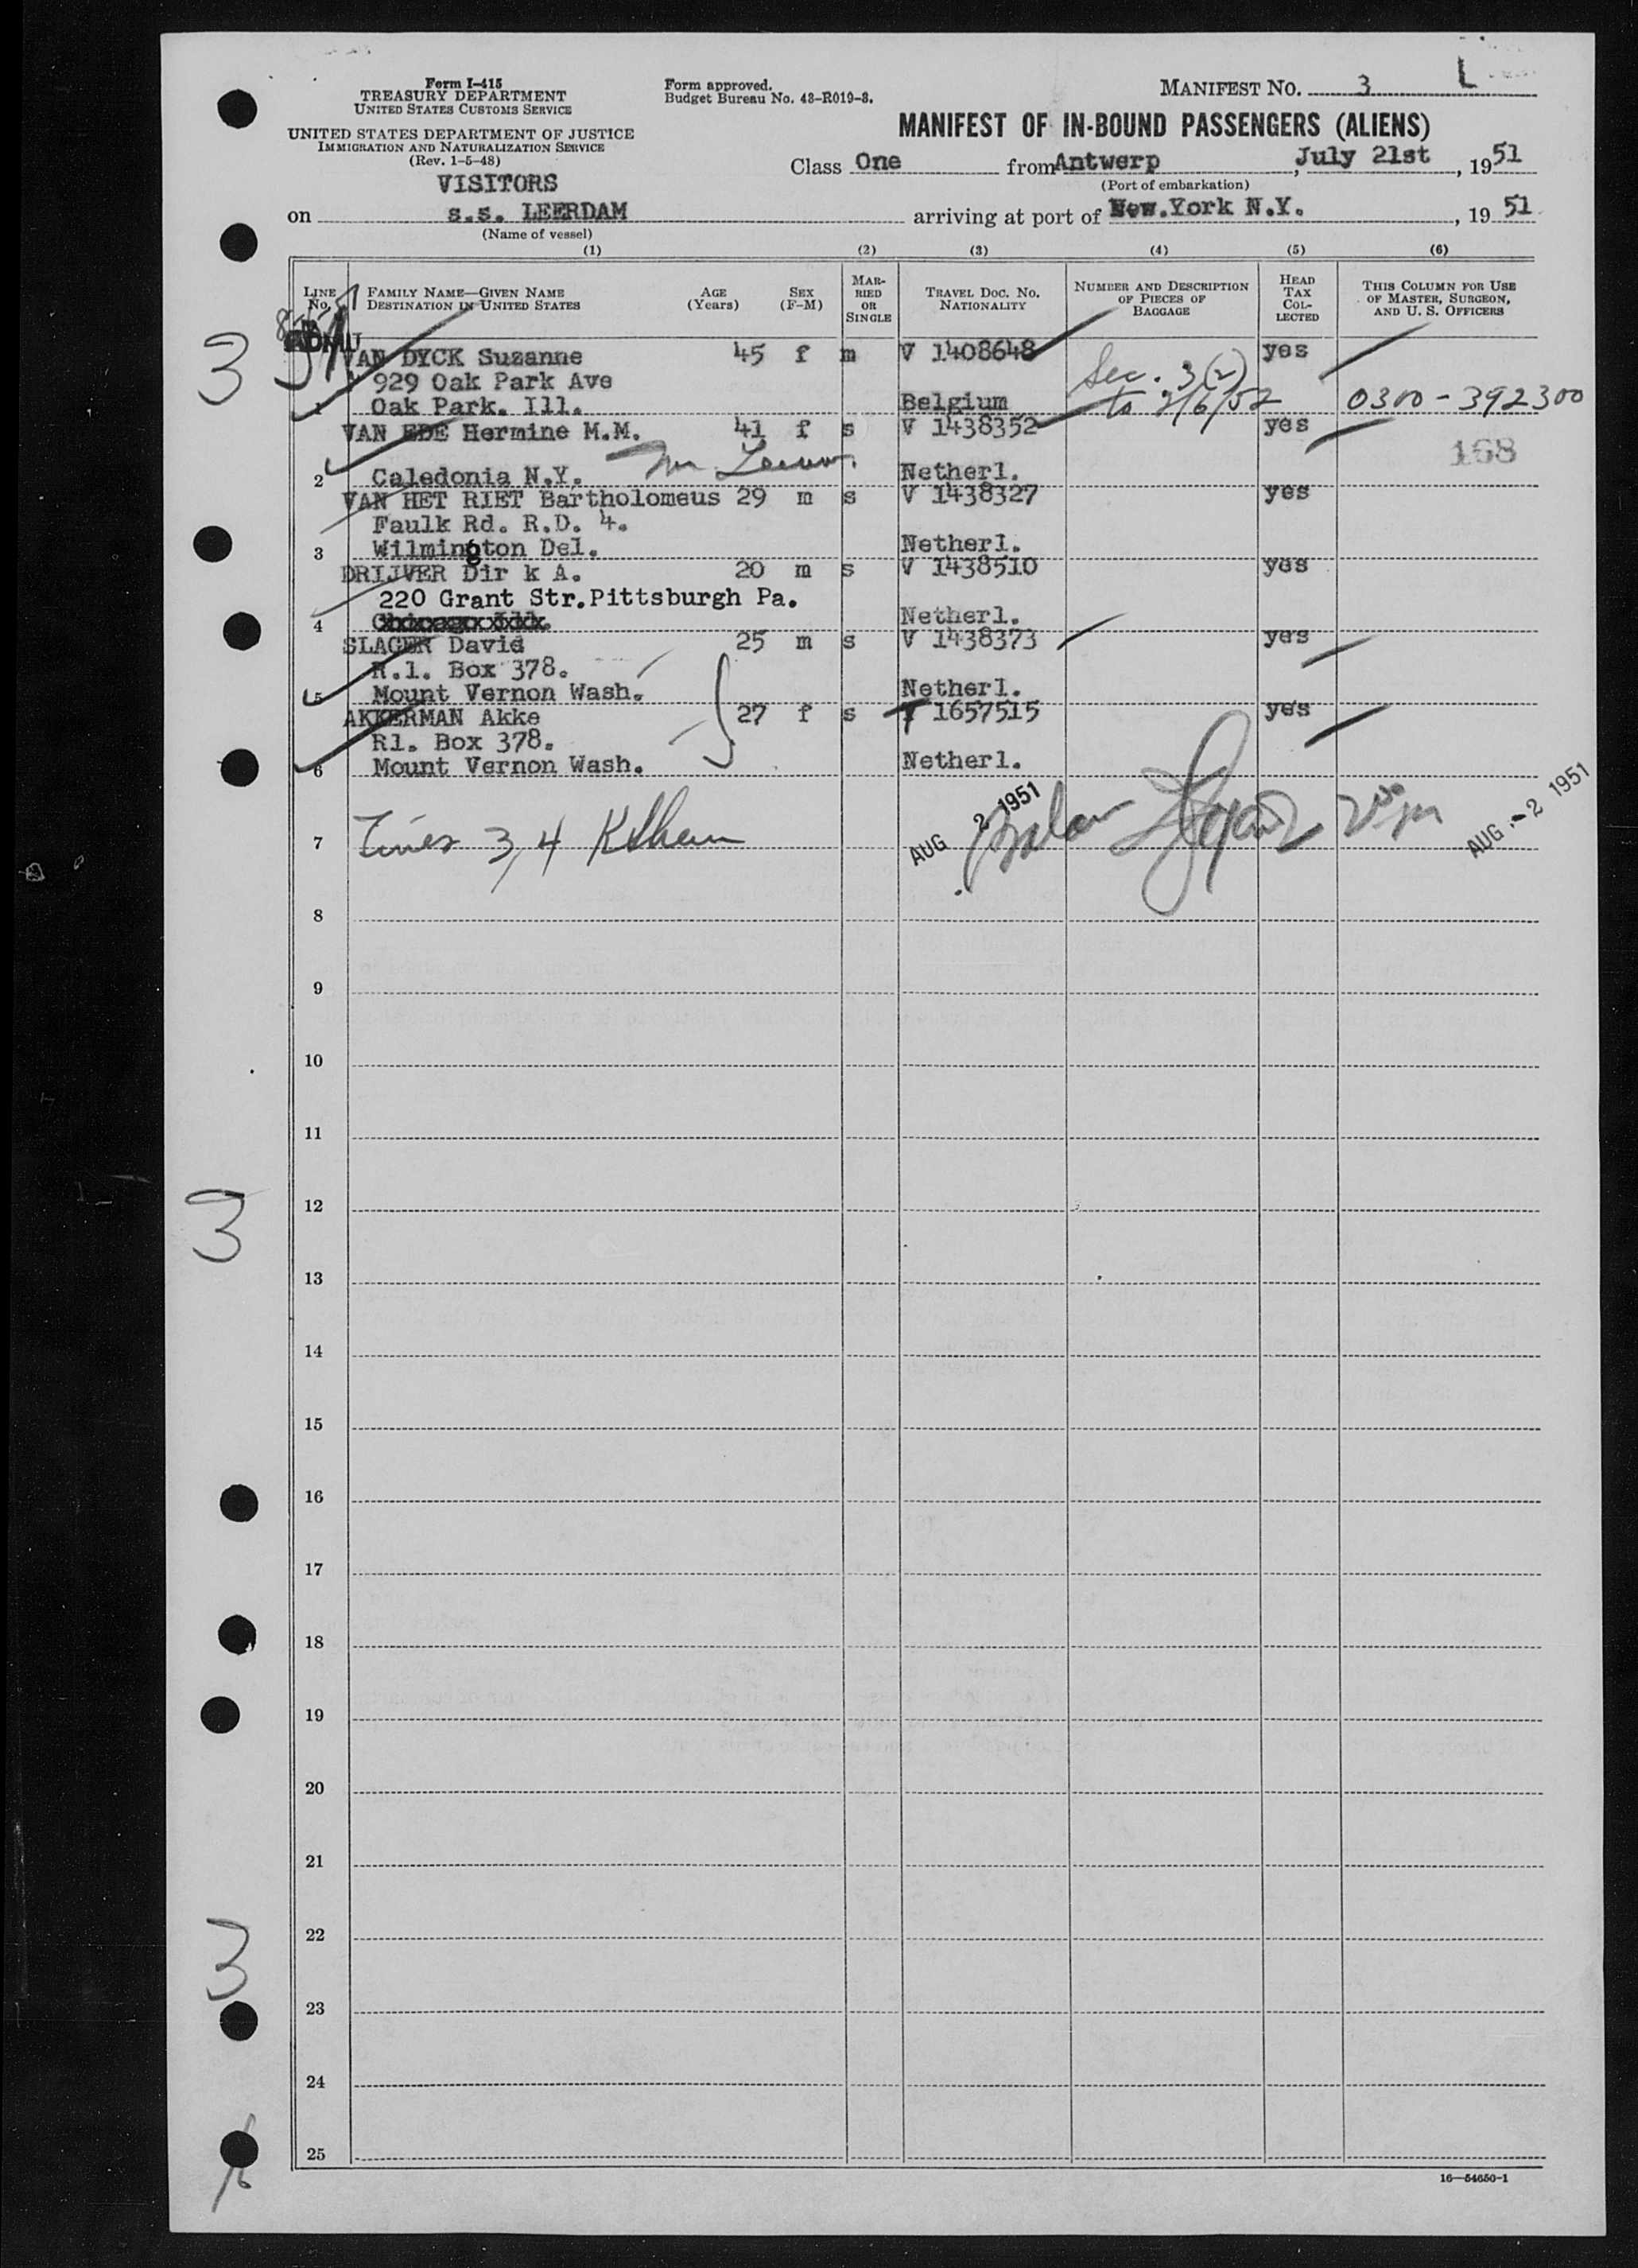 Form I-415
TREASURY DEPARTMENT
UNITED STATES CUSTOMS SERVICE
UNITED STATES DEPARTMENT OF JUSTICE
IMMIGRATION AND NATURALIZATION SERVICE
(Rev. 1-5-48)
VISITORS
Form approved.
Budget Bureau No. 43-R019-3.
MANIFEST NO. 3 L
MANIFEST OF IN-BOUND PASSENGERS (ALIENS)
Class One from Antwerp, July 21st, 1951
(Port of embarkation)
on s.s. LEERDAM arriving at port of New.York N.Y., 1951
(Name of vessel)
(1) (2) (3) (4) (5) (6)
LINE No. FAMILY NAME—GIVEN NAME DESTINATION IN UNITED STATES AGE (Years) SEX (F-M) MARRIED OR SINGLE TRAVEL DOC. NO. NATIONALITY NUMBER AND DESCRIPTION OF PIECES OF BAGGAGE HEAD TAX COLLECTED THIS COLUMN FOR USE OF MASTER, SURGEON, AND U. S. OFFICERS
3
VAN DYCK Suzanne 45 f m V 1408648 yes
929 Oak Park Ave Sec. 3(2)
1 Oak Park. Ill. Belgium to 2/6/52 0300-392300
VAN EDE Hermine M.M. 41 f s V 1438352 yes
168
2 Caledonia N.Y. Netherl.
VAN HET RIET Bartholomeus 29 m s V 1438327 yes
Faulk Rd. R.D. 4.
3 Wilmington Del. Netherl.
DRIJVER Dir k A. 20 m s V 1438510 yes
220 Grant Str.Pittsburgh Pa.
4 Netherl.
SLAGER David 25 m s V 1438373 yes
R.1. Box 378.
5 Mount Vernon Wash. Netherl.
AKKERMAN Akke 27 f s T 1657515 yes
R1. Box 378.
6 Mount Vernon Wash. Netherl.
7 Lines 3, 4 AUG 2 1951 AUG - 2 1951
8
9
10
11
3
12
13
14
15
16
17
18
19
20
21
22
3
23
24
25
16—54650-1